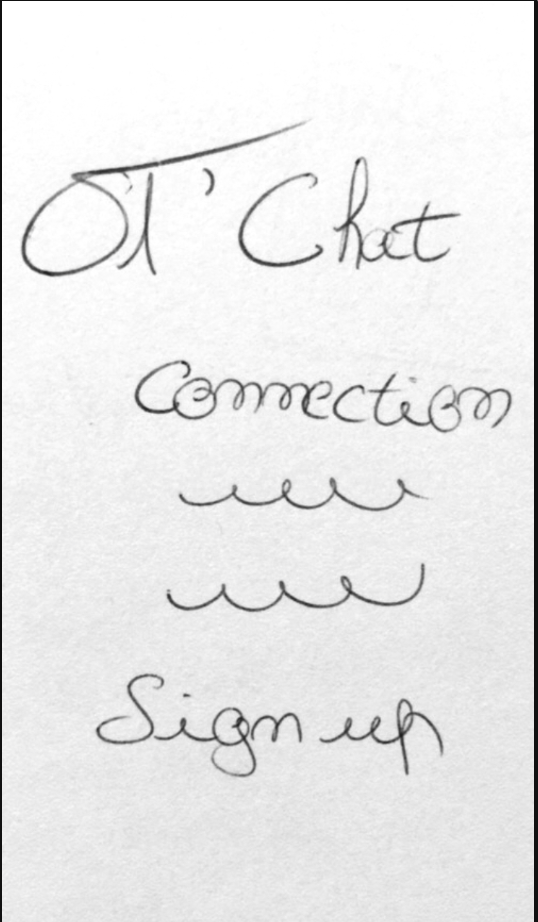 OT' Chat
Connection
Sign up